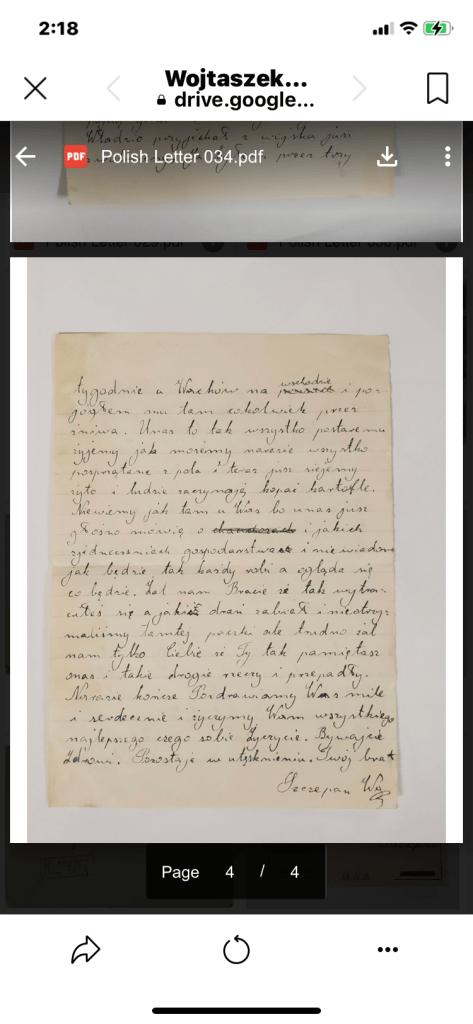 2:18
Wojtaszek...
drive.google...
Władzio przyjechał z wojska już
PDF Polish Letter 034.pdf
przez trzy
tygodnie u Wnęków na wschodzie i po-
mu tam cokolwiek przez
żniwa. U nas to tak wszystko postaremu
żyjemy jak możemy narazie wszystko
posprzątane z pola i teraz już siejemy
żyto i ludzie zaczynają kopać kartofle.
Niewiemy jak tam u Was bo unas już
głośno mówią o i jakich
gospodarstwach i niewiadomo
jak będzie tak każdy robi a ogląda się
co będzie. Żal nam Bracie że tak
się a jakiś drań zabrał i nieotrzy-
maliśmy tamtej paczki ale trudno żal
nam tylko Ciebie że Ty tak pamiętasz
onas i takie drogie rzeczy i przepadły.
Narazie kończę Pozdrawiamy Was mile
i serdecznie i życzymy Wam wszystkiego
najlepszego czego sobie życzycie. Bywajcie
Zdrowi. Pozostaję w utęsknieniu. Twój brat
Szczepan
Page 4 / 4